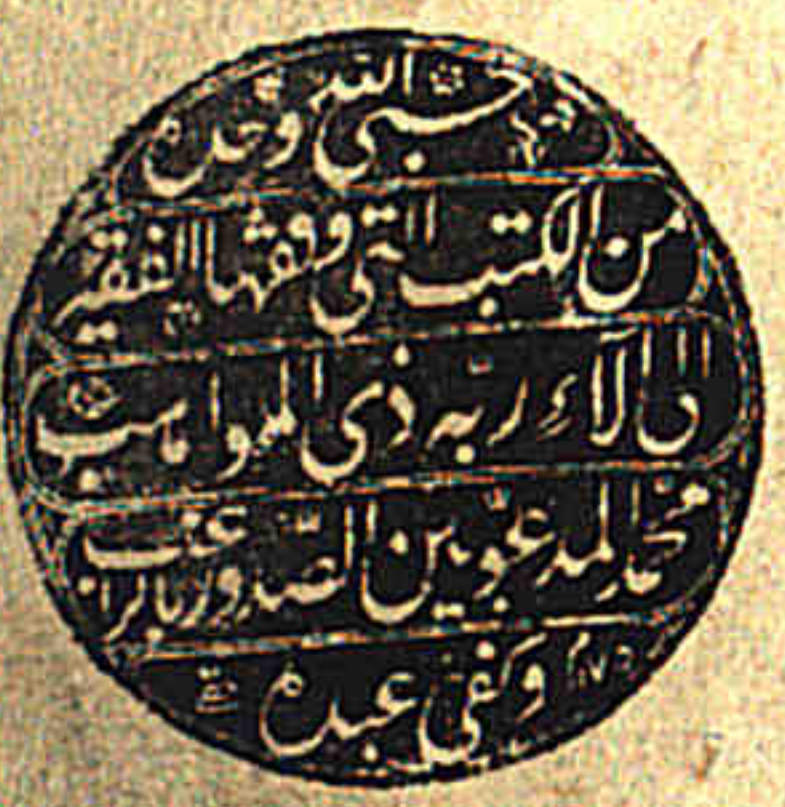 حسبي الله وحده
من الكتب التي وقفها الفقير
الى آلاء ربّه ذي المواهب
محمد المدعو بين الصّدور بالراغب
وكفى عبده